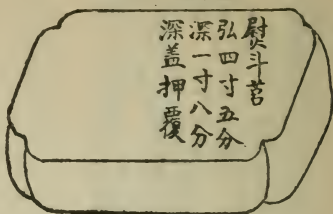 熨斗莒
弘四寸五分
深一寸八分
深盖押覆